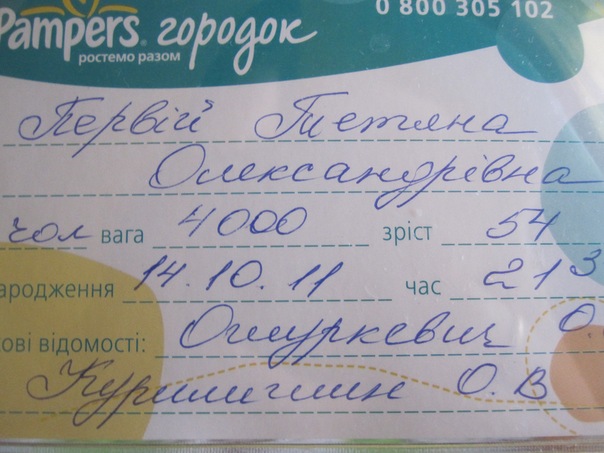 0 800 305 102
Pampers городок
ростемо разом
Первій Тетяна
Олександрівна
чол вага 4000 зріст 54
ародження 14.10.11 час 21 3
ові відомості: Ошуркевич О.
О.В